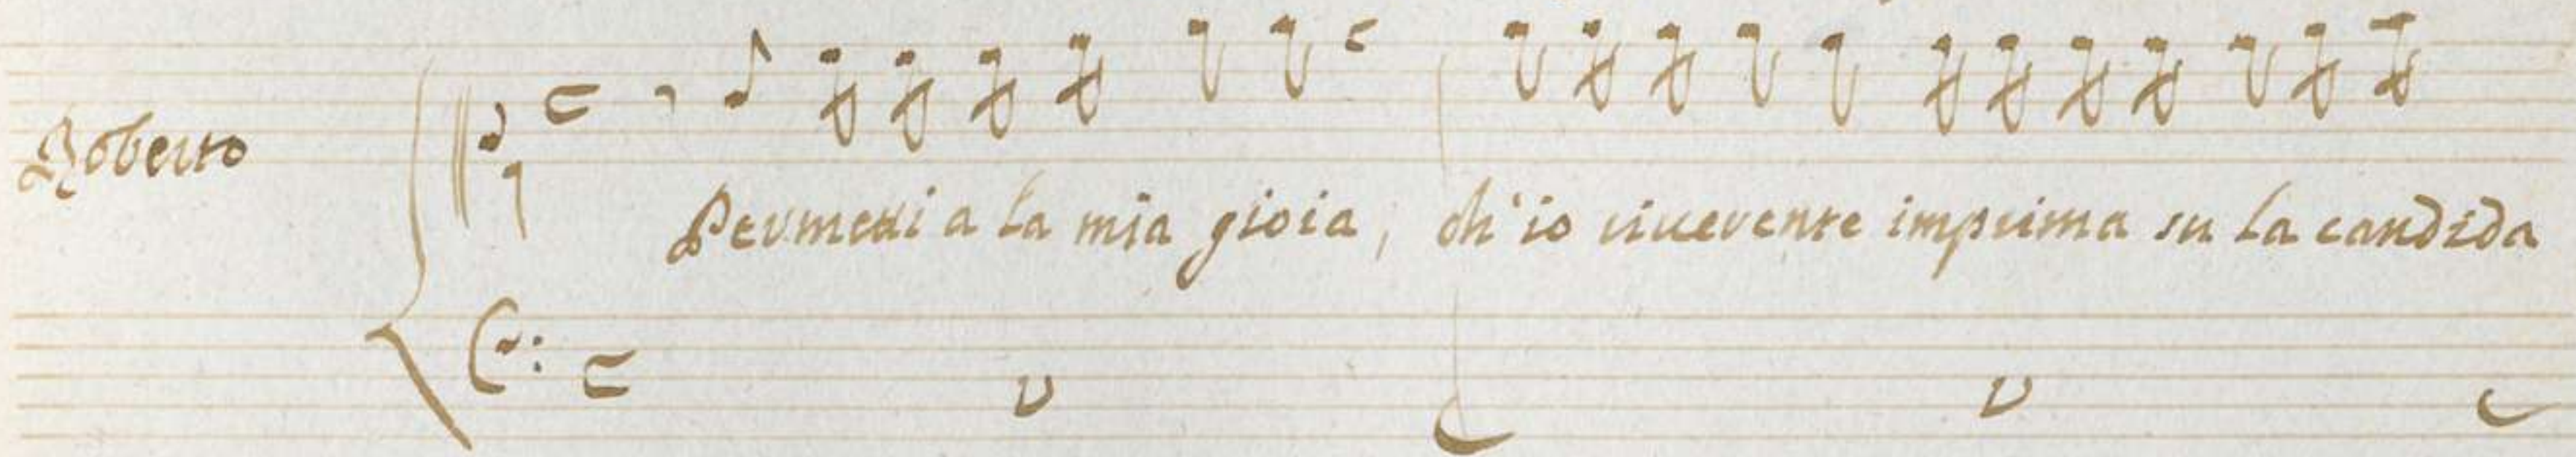 Roberto
Permetti a la mia gioia, ch'io riverente imprima su la candida